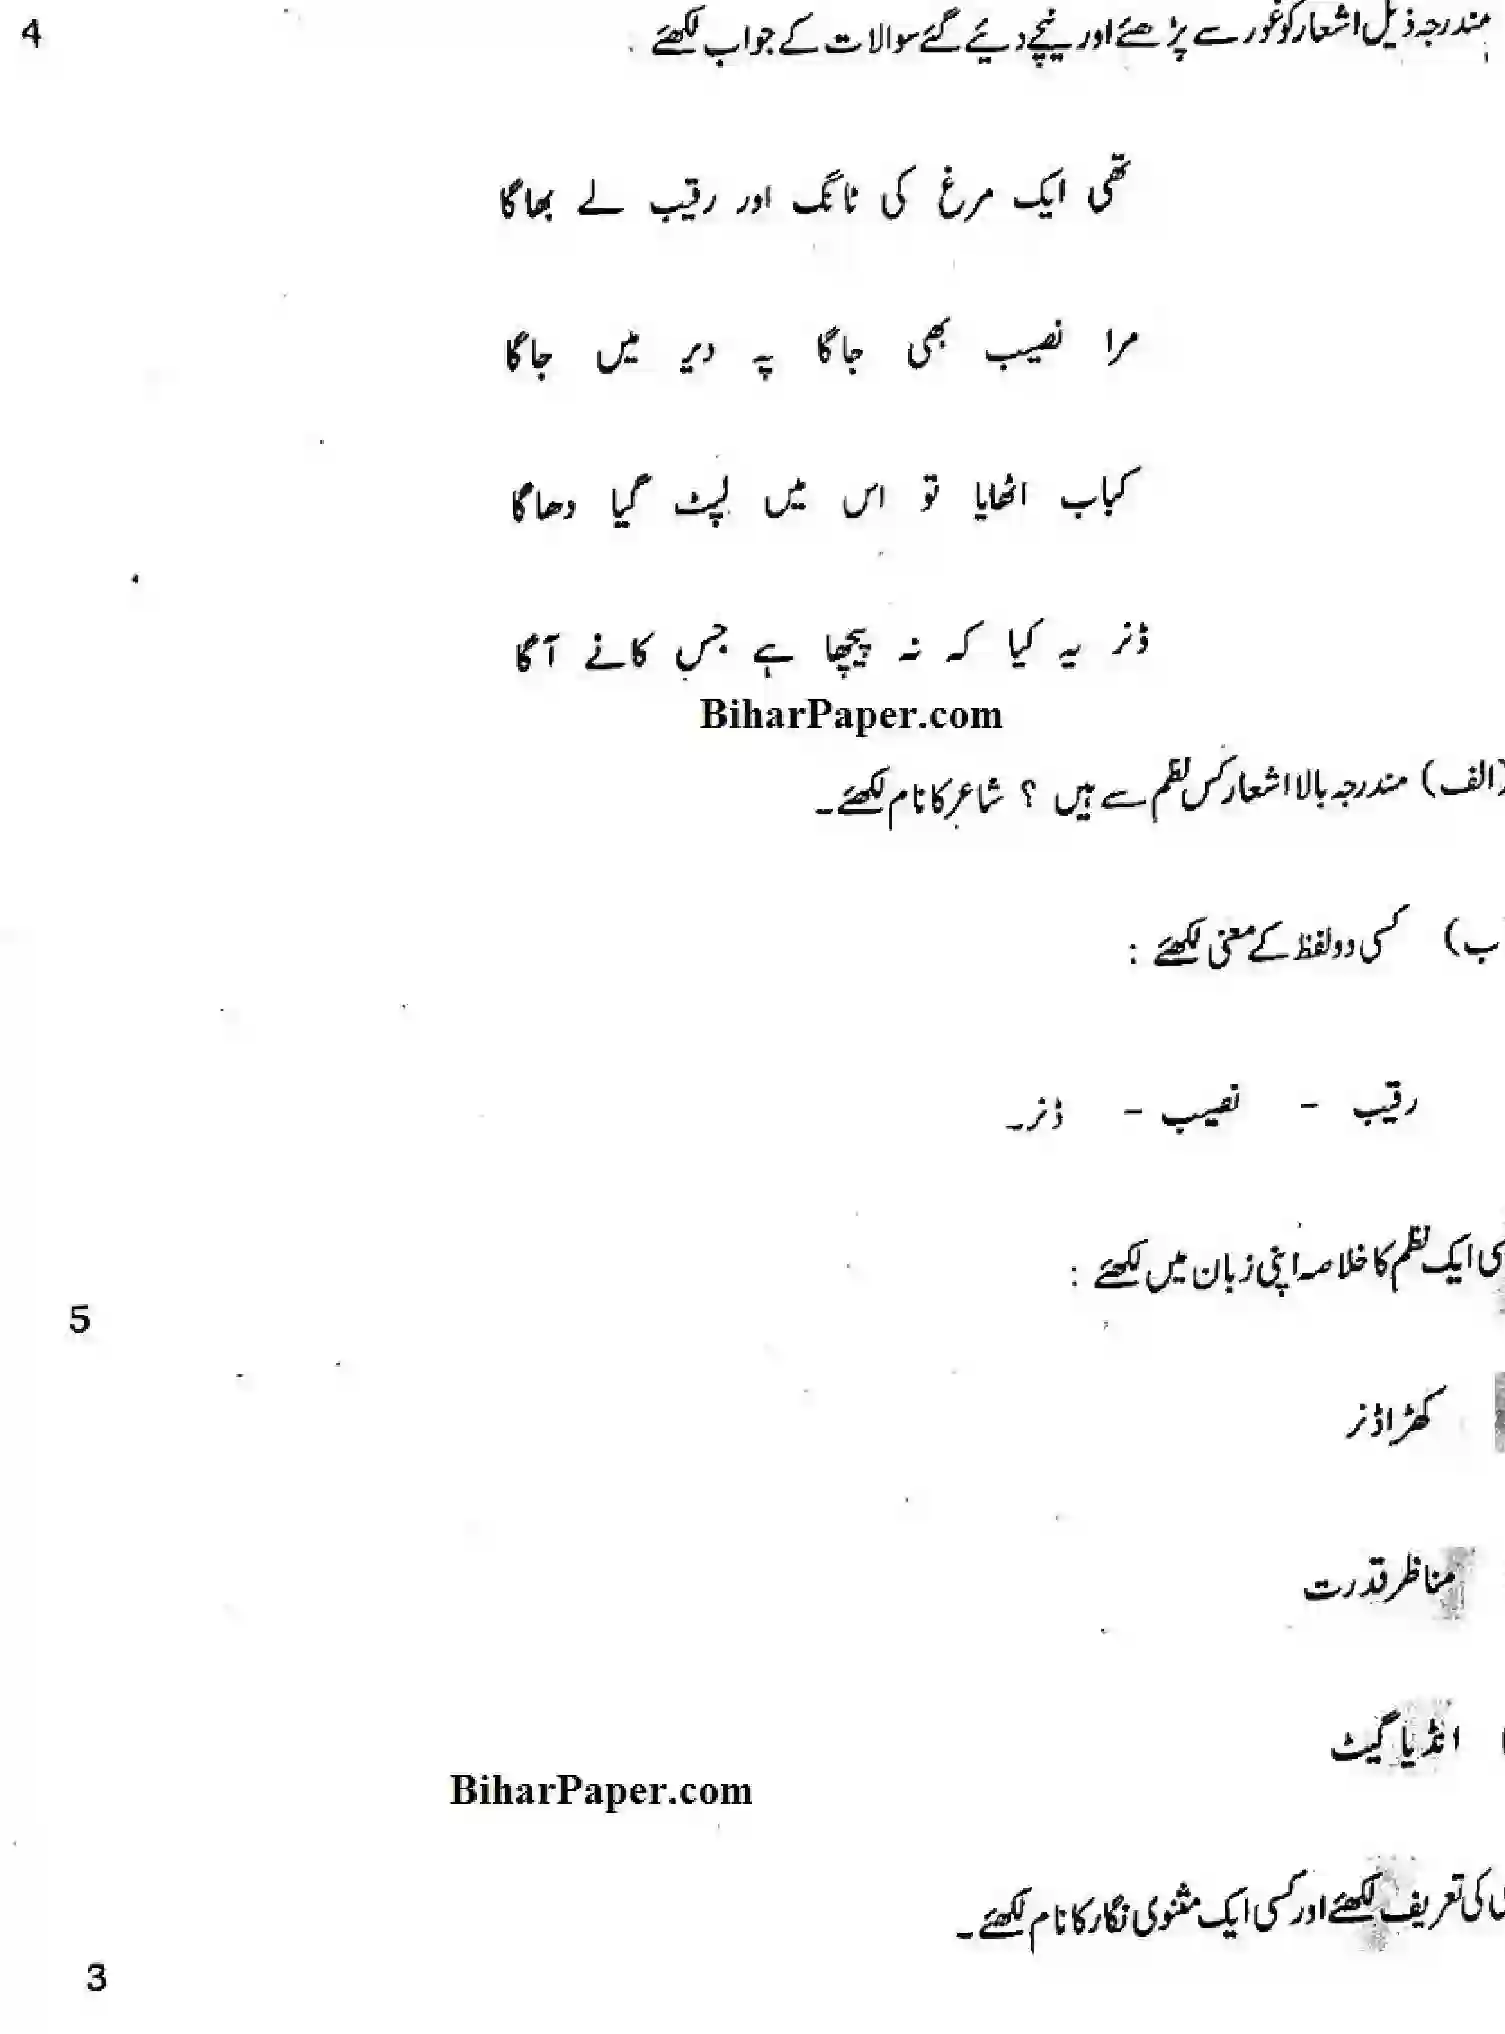 مندرجہ ذیل اشعار کو غور سے پڑھئے اور نیچے دیئے گئے سوالات کے جواب لکھئے : 4
تھی ایک مرغ کی ٹانگ اور رقیب لے بھاگا
مرا نصیب بھی جاگا پہ دیر میں جاگا
کباب اٹھایا تو اس میں لپٹ گیا دھاگا
ڈنر یہ کیا کہ نہ پیچھا ہے جس کا نے آگا
BiharPaper.com
(الف) مندرجہ بالا اشعار کس نظم سے ہیں ؟ شاعر کا نام لکھئے۔
ب) کسی دو لفظ کے معنی لکھئے :
رقیب - نصیب - ڈنر۔
ایک نظم کا خلاصہ اپنی زبان میں لکھئے :
5
کھڑا ڈنر
مناظر قدرت
انڈیا گیٹ
BiharPaper.com
کی تعریف لکھئے اور کسی ایک مثنوی نگار کا نام لکھئے۔
3